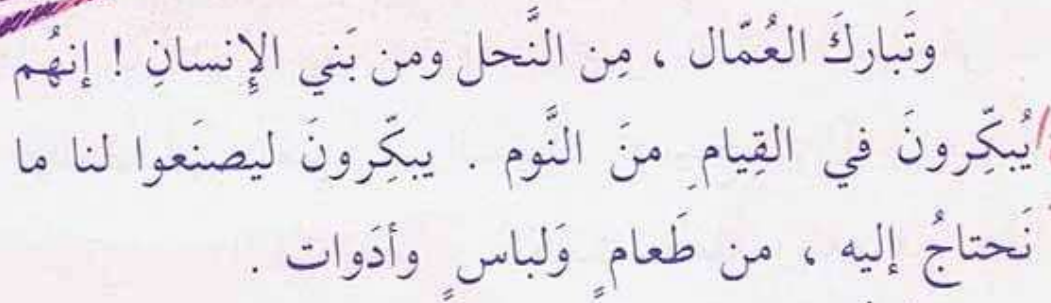 وتَباركَ العُمّال ، مِن النَّحل ومن بَني الإِنسانِ ! إنهُم
يُبكِّرونَ في القِيامِ منَ النَّوم . يبكِّرونَ ليصنَعوا لنا ما
نَحتاجُ إليه ، من طَعامٍ وَلباسٍ وأدَوات .